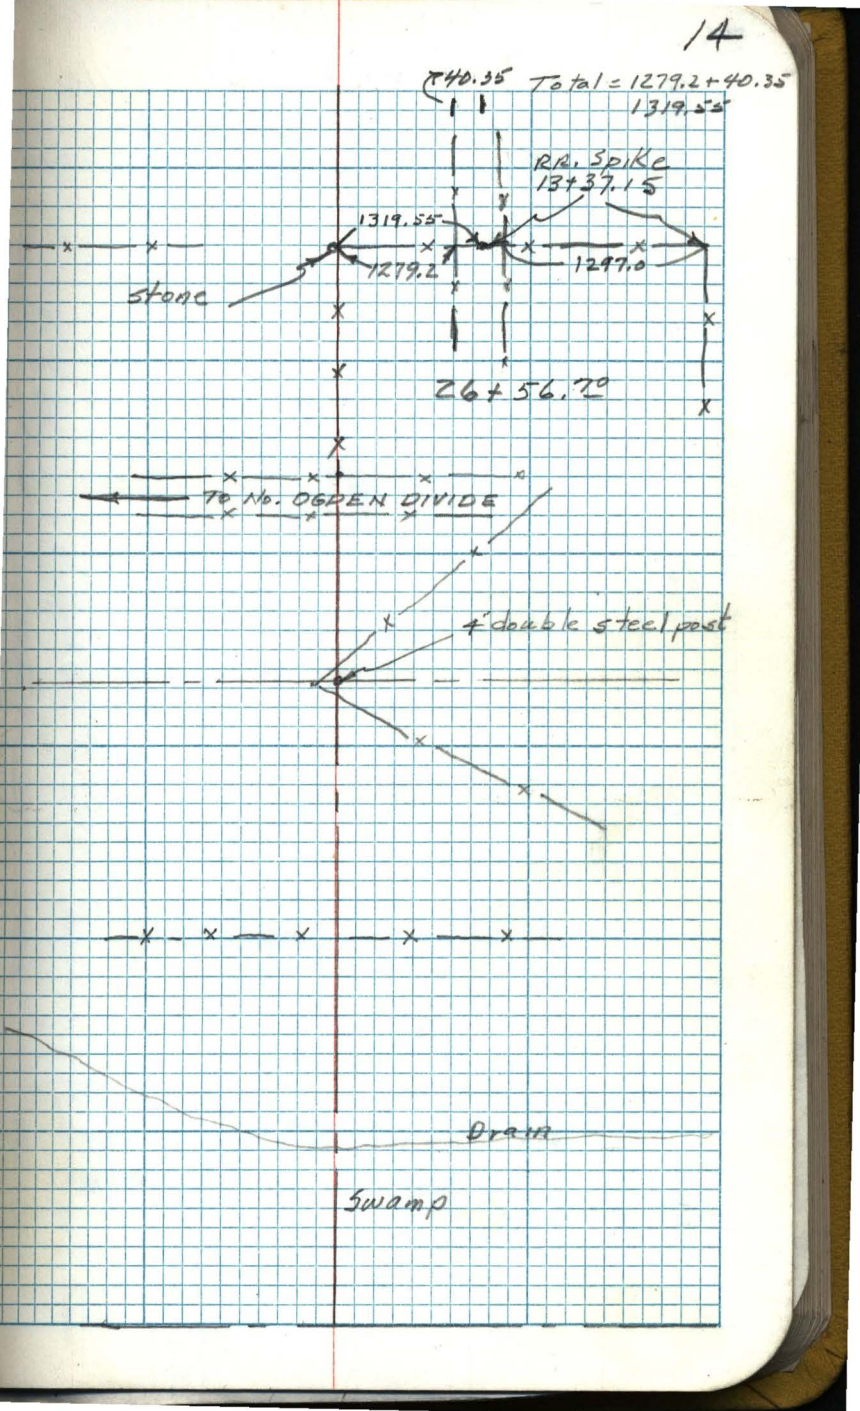 14
40.35 Total = 1279.2 + 40.35
1319.55
RR. Spike
13+37.15
1319.55
1279.2
1297.0
stone
26+56.70
TO No. OGDEN DIVIDE
4" double steel post
Drain
Swamp